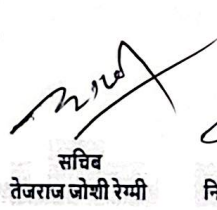 सचिव
तेजराज जोशी रेग्मी
नि